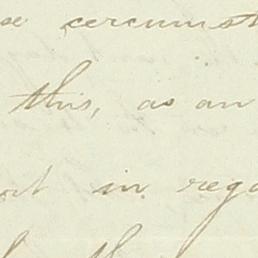 se circumst
this, as an
ort in rega